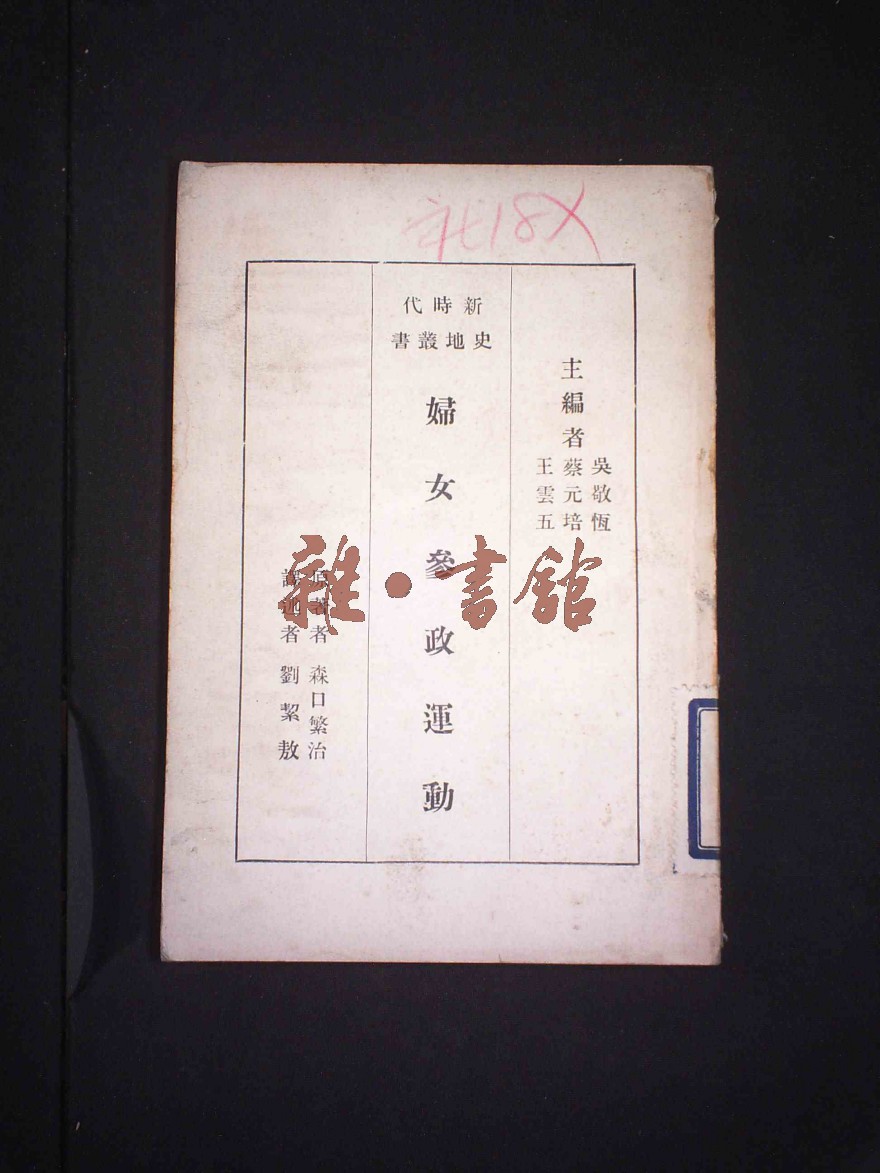 社18X
主編者
吳敬恆
蔡元培
王雲五
新時代
史地叢書
婦女參政運動
原著者 森口繁治
譯述者 劉絜敖
雜·書館